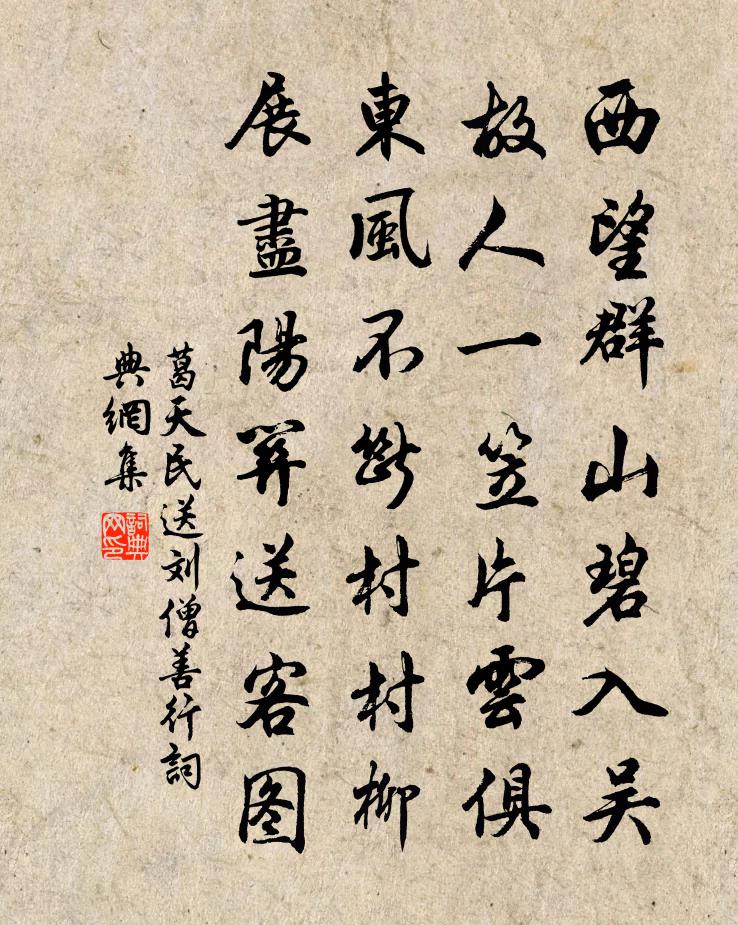 西望群山碧入吴
故人一笠片雲俱
東風不斷村村柳
展盡陽關送客图
葛天民送刘僧善行詞
典網集
詞典
网印